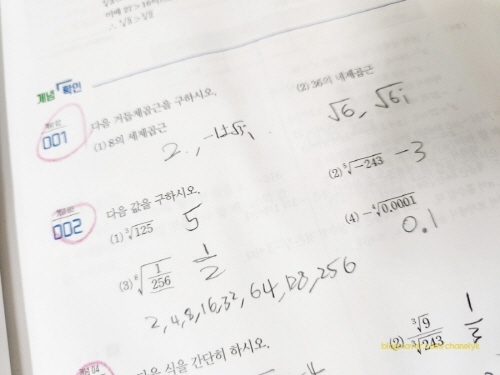 개념 확인
001
다음 거듭제곱근을 구하시오.
(1) 8의 세제곱근
2., -1±√3i
(2) 36의 네제곱근
√6, √6i
002
다음 값을 구하시오.
(1) ³√125 5
(2) ⁵√-243 -3
(3) ⁸√1/256 1/2
(4) -⁴√0.0001 0.1
2,4,8,16,32,64,128,256
다음 식을 간단히 하시오.
(2) ³√9/³√243 1/3